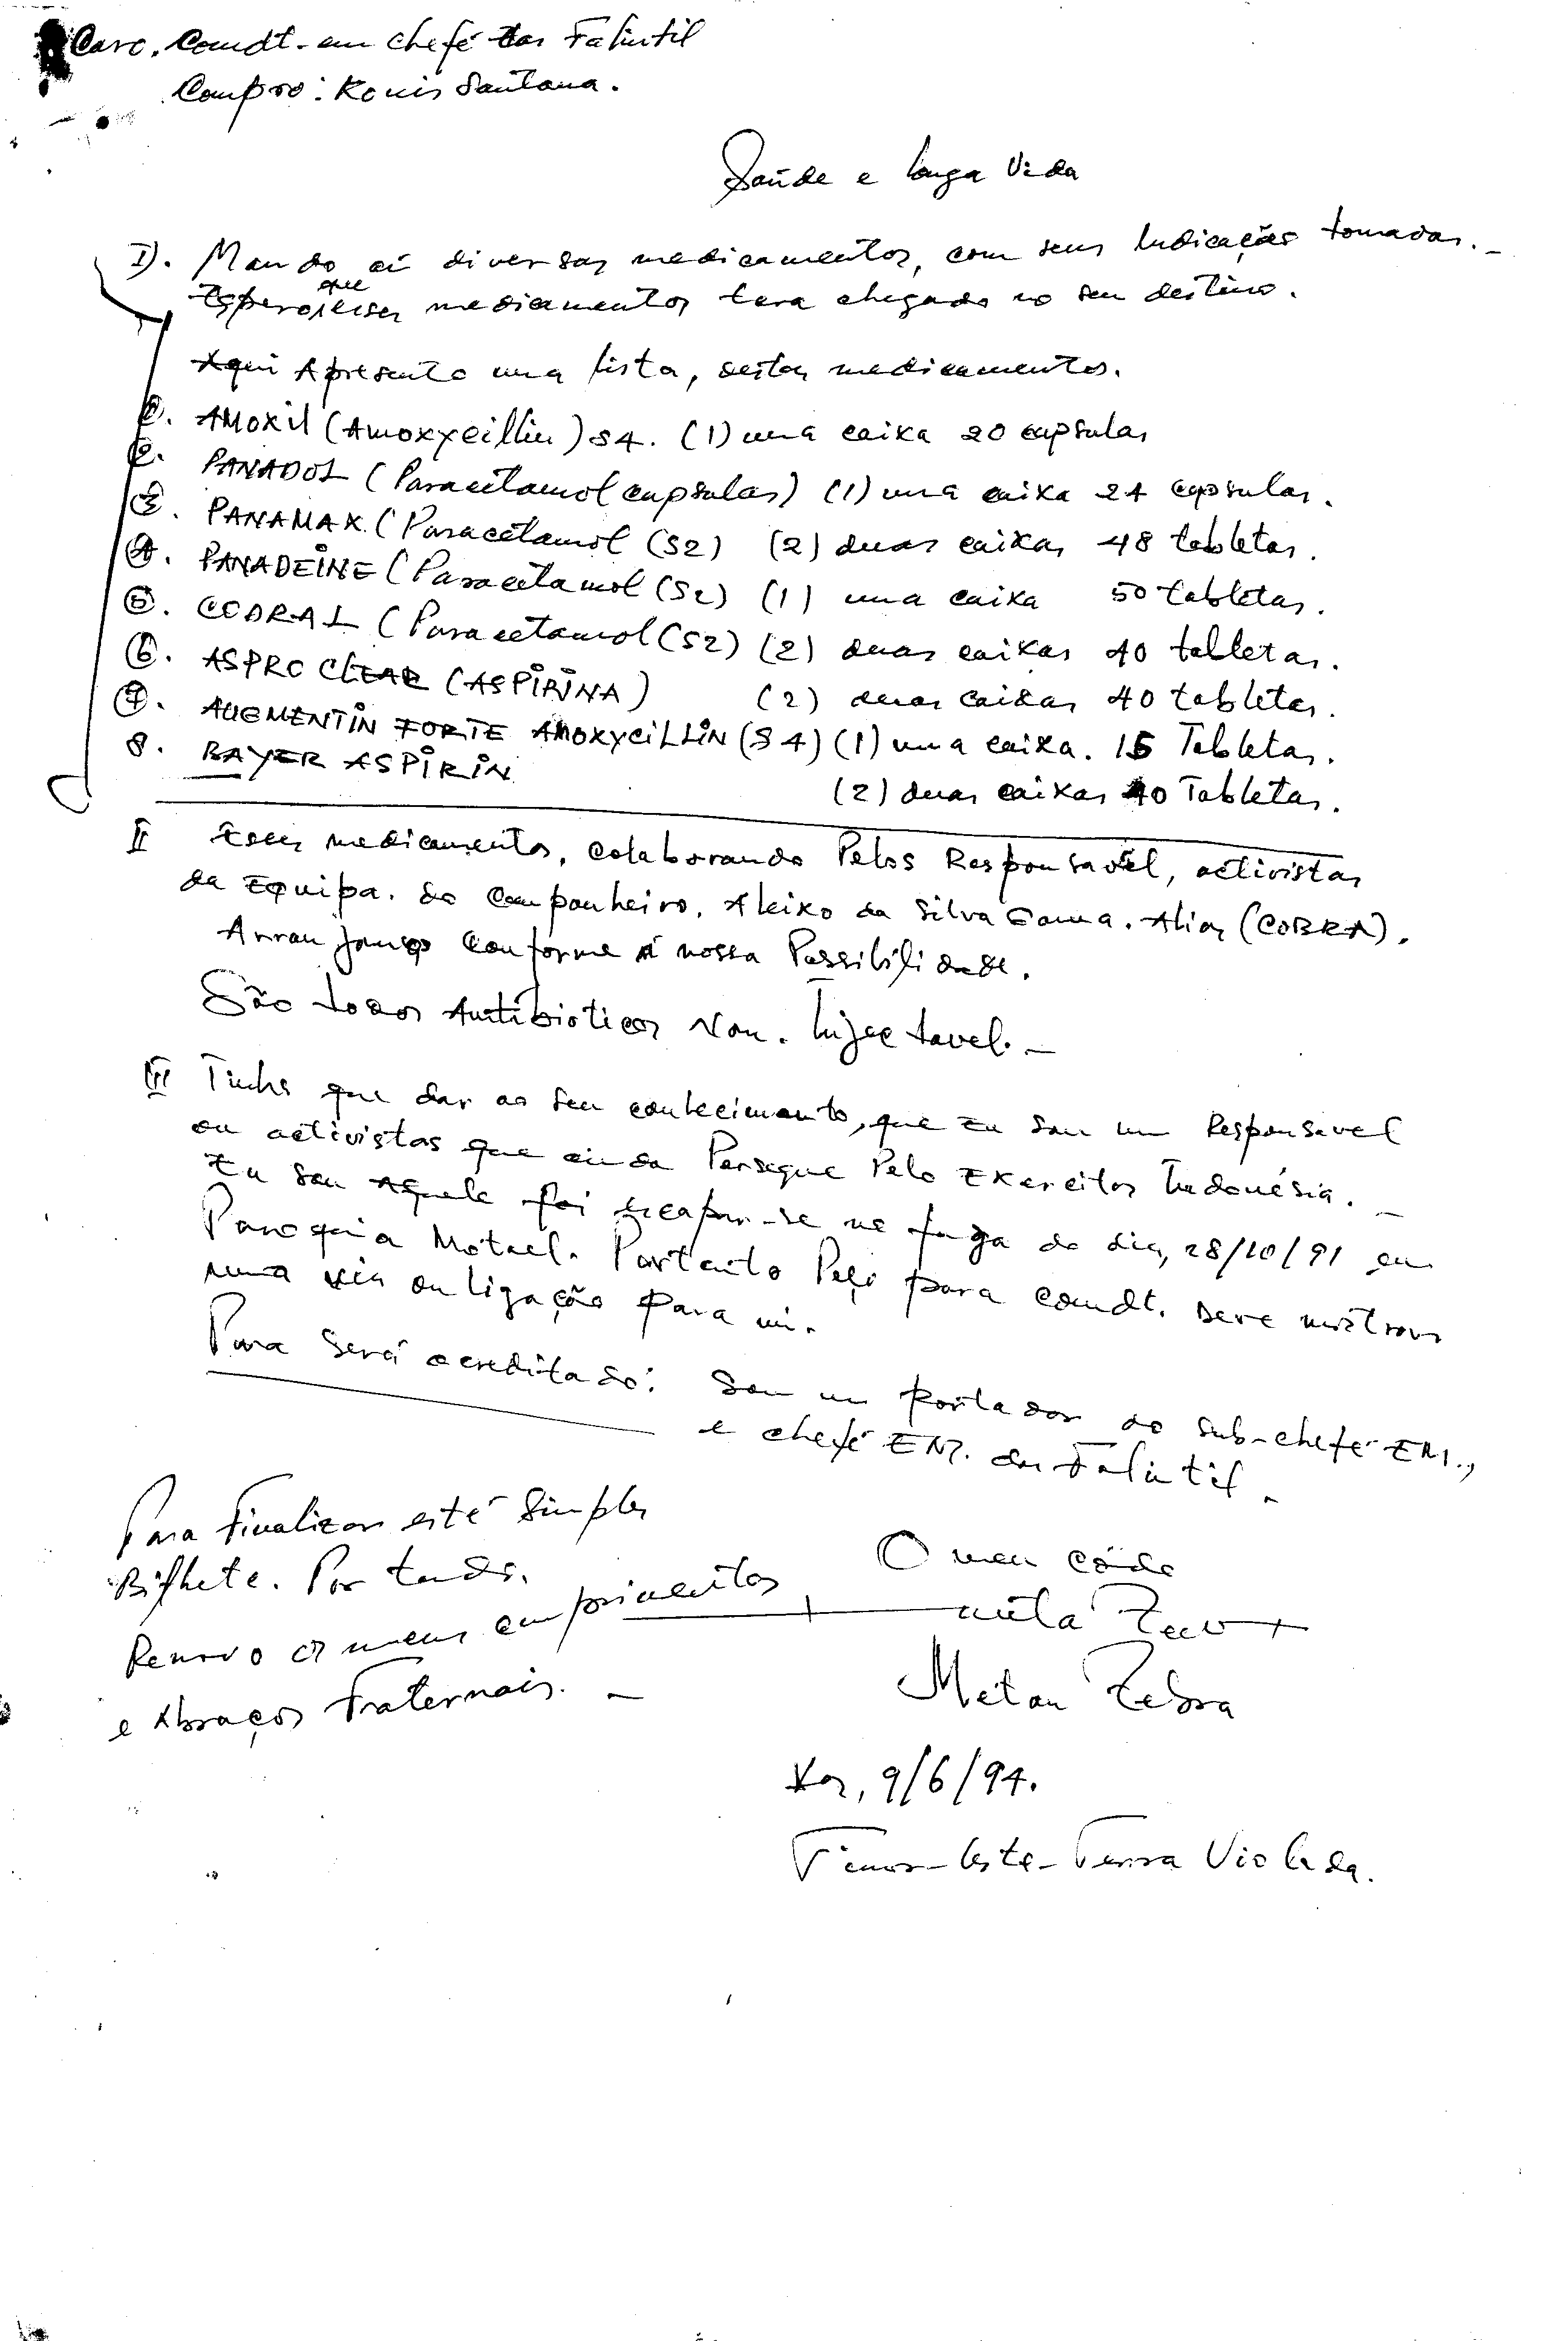 Caro, Comdt. em chefé das Falintil
Compro: Konis Santana.
Saúde e longa Vida
I). Mando aí diversas medicamentos, com seus Indicações tomadas. -
que
Espero esses medicamentos tera chegado no seu destino.
Aqui Apresento uma lista, destes medicamentos.
1. AMOXIL (Amoxycillin) S4. (1) uma caixa 20 capsulas
2. PANADOL (Paracetamol capsulas) (1) uma caixa 24 capsulas.
3. PANAMAX (Paracetamol (S2) (2) duas caixas 48 tabletas.
4. PANADEINE (Paracetamol (S2) (1) uma caixa 50 tabletas.
5. CODRAL (Paracetamol (S2) (2) duas caixas 40 tabletas.
6. ASPRO CLEAR (ASPIRINA) (2) duas caixas 40 tabletas.
7. AUGMENTIN FORTE AMOXYCILLIN (S4) (1) uma caixa. 15 Tabletas.
8. BAYER ASPIRIN (2) duas caixas 40 Tabletas.
II Esses medicamentos, colaborando Pelos Responsavél, activistas
da Equipa. do Companheiro, Aleixo da Silva Gama. Alias (COBRA).
Arranjamos conforme á nossa Possibilidade.
São todos Antibioticos Non. Injectavel. -
III Tinha que dar ao seu conhecimento, que Eu sou um Responsavel
ou activistas que ainda Persegue Pelo Exercitos Indonésia. -
Eu sou Aquele foi escapar-se na fuga do dia, 28/10/91 em
Paroquia Motael. Portanto Peço para comdt. Deve mostrar
uma via ou ligação para mi.
Para Será acreditado: Sou um Portador do sub-chefé EM.,
e chefé EM. das Falintil.
Para Finalizar esté Simples
Bilhete. Por tando.
Renovo os meus cumprimentos
e Abraços Fraternais. -
O meu códe
Metan Zebra
Xos, 9/6/94.
Timor-Leste-Terra Violada.